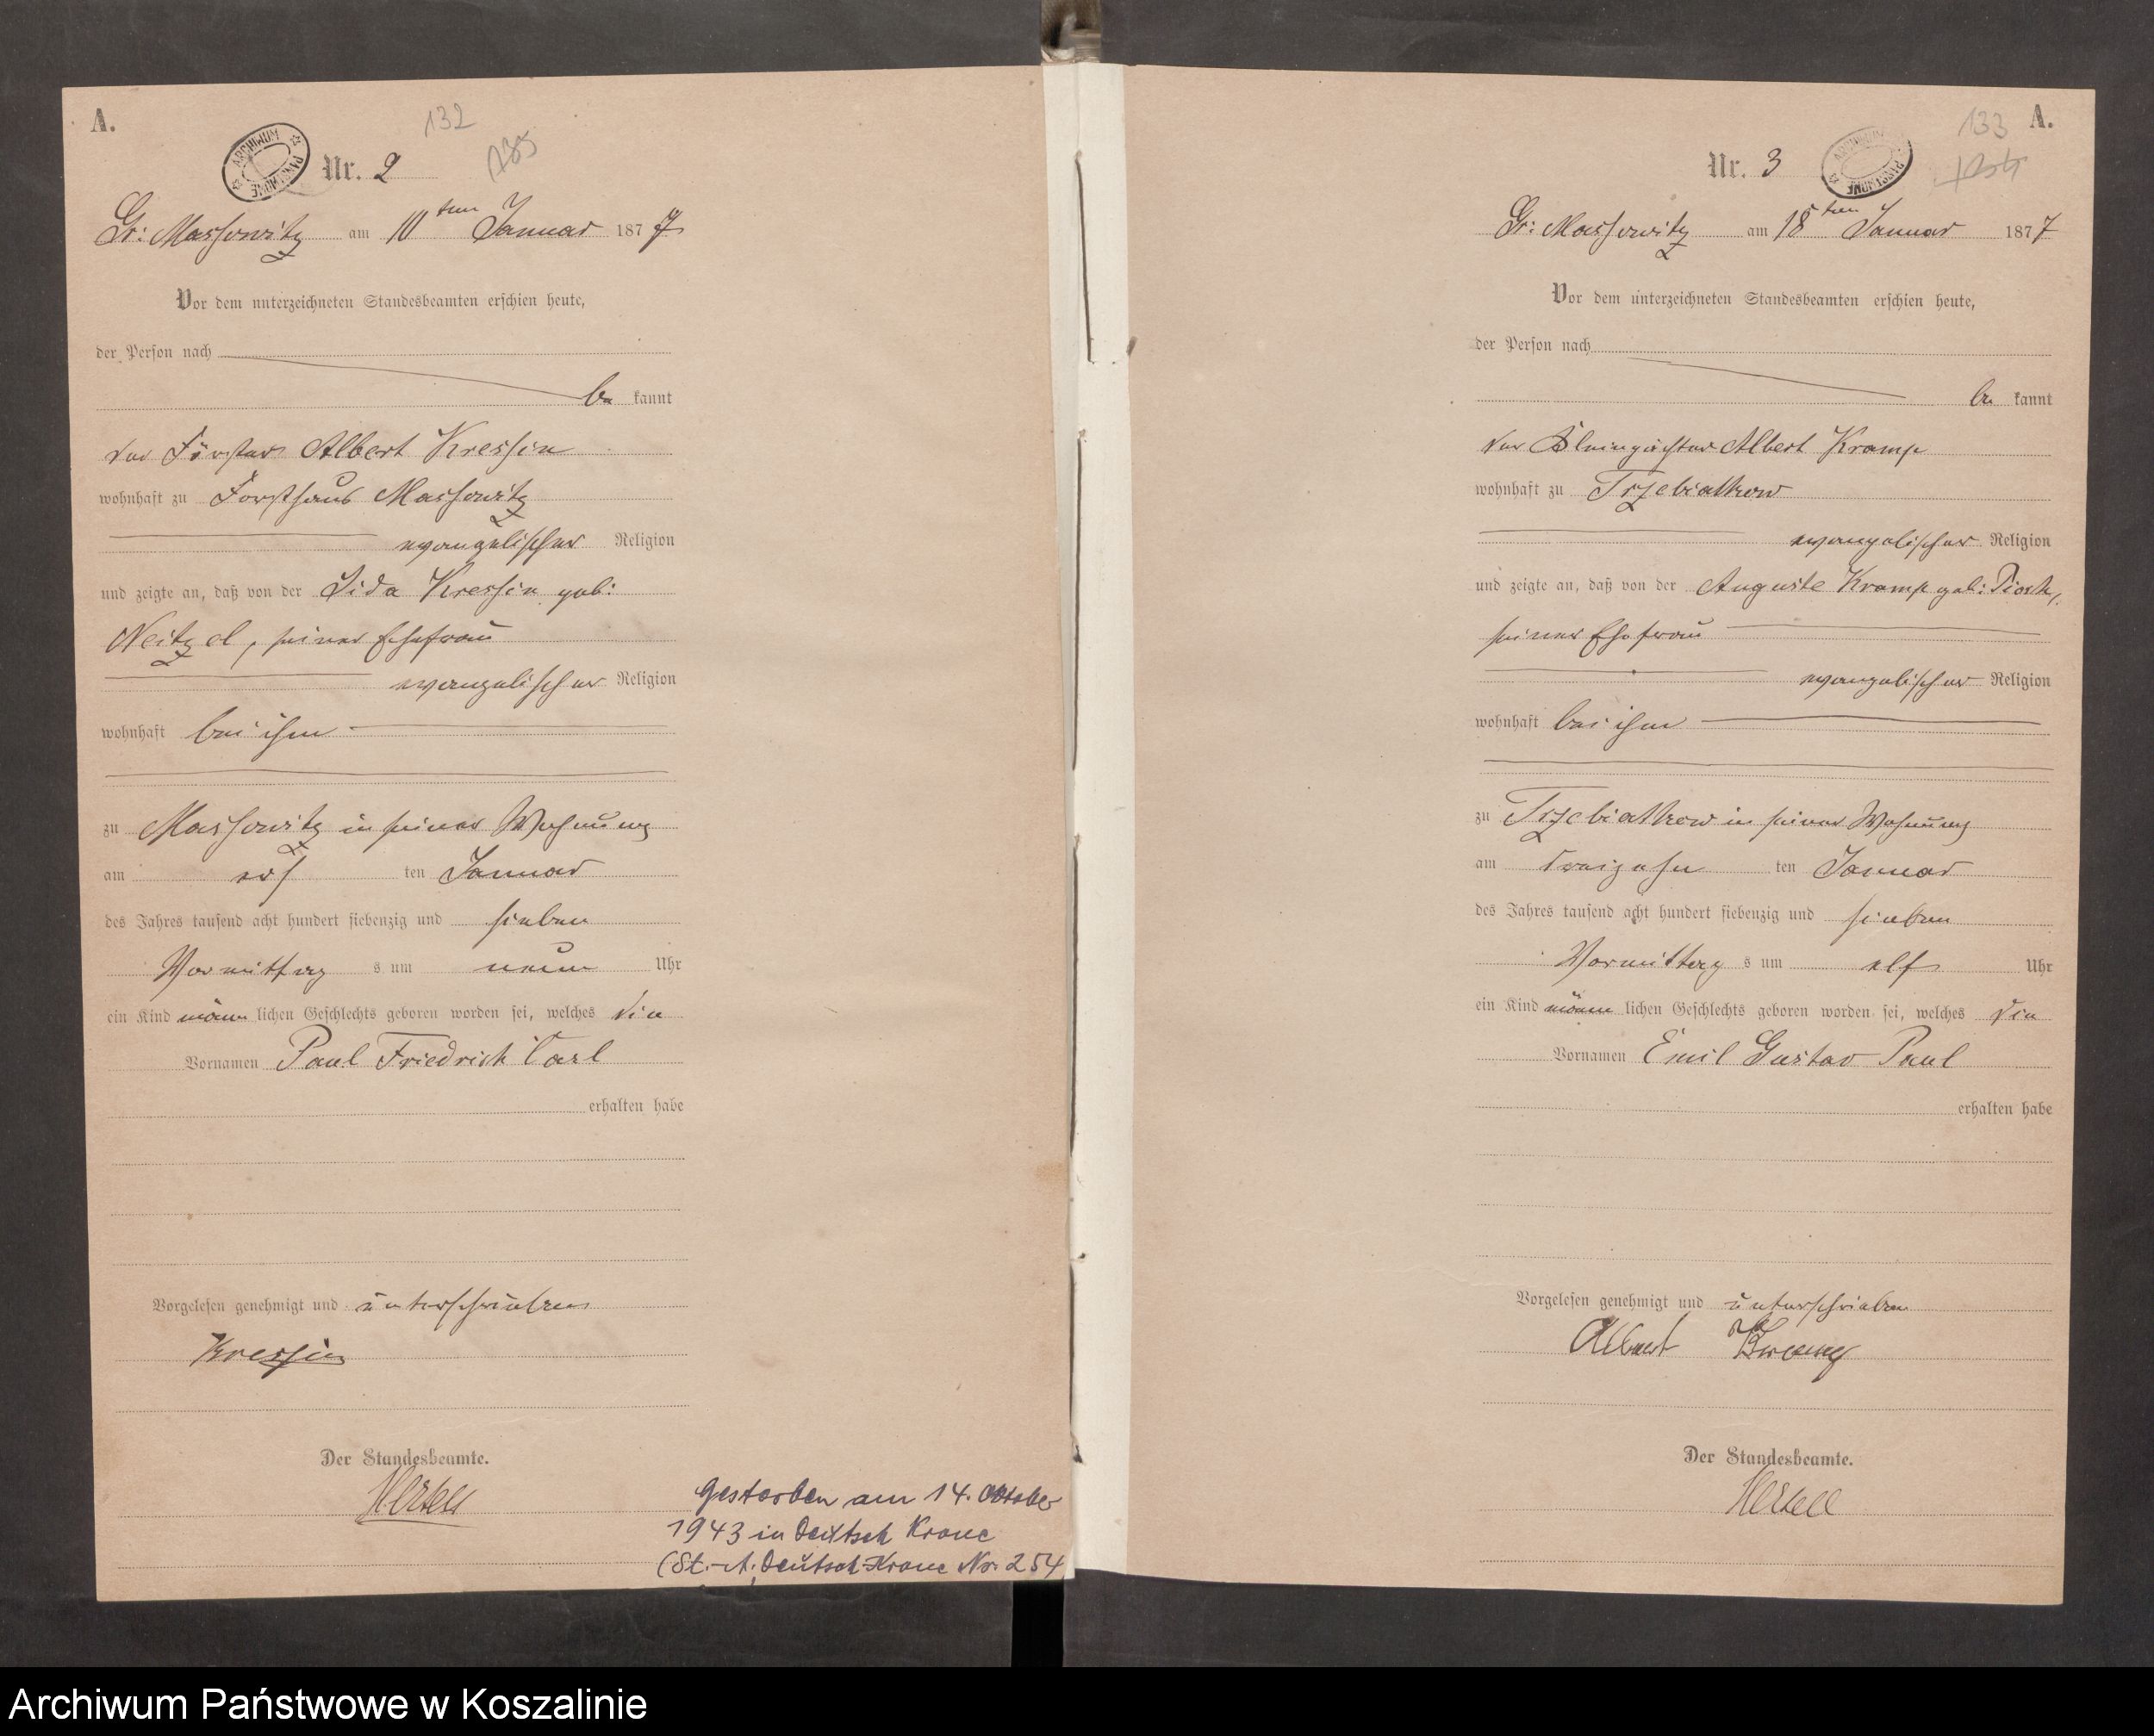 A.
132
135
ARCHIWUM PAŃSTWOWE
Nr. 2
Gr: Massowitz am 10ten Januar 1877
Vor dem unterzeichneten Standesbeamten erschien heute,
der Person nach
be kannt
der Förster Albert Kressin
wohnhaft zu Forsthaus Massowitz
evangelischer Religion
und zeigte an, daß von der Lida Kressin geb:
Neitzel, seiner Ehefrau
evangelischer Religion
wohnhaft bei ihm
zu Massowitz in seiner Wohnung
am ers ten Januar
des Jahres tausend acht hundert siebenzig und sieben
Vormittag s um neun Uhr
ein Kind männ lichen Geschlechts geboren worden sei, welches die
Vornamen Paul Friedrich Carl
erhalten habe
Vorgelesen genehmigt und unterschrieben
Kressin
Der Standesbeamte.
Hertell
gestorben am 14. Oktober
1943 in Deutsch Krone
(St.-A. Deutsch-Krone Nr. 254
A.
133
ARCHIWUM PAŃSTWOWE
Nr. 3
Gr: Massowitz am 18ten Januar 1877
Vor dem unterzeichneten Standesbeamten erschien heute,
der Person nach
be kannt
der Kleinpächter Albert Kramp
wohnhaft zu Trzebiatkow
evangelischer Religion
und zeigte an, daß von der Auguste Kramp geb: Piosk,
seiner Ehefrau
evangelischer Religion
wohnhaft bei ihm
zu Trzebiatkow in seiner Wohnung
am dreizehn ten Januar
des Jahres tausend acht hundert siebenzig und sieben
Vormittag s um elf Uhr
ein Kind männ lichen Geschlechts geboren worden sei, welches die
Vornamen Emil Gustav Paul
erhalten habe
Vorgelesen genehmigt und unterschrieben
Albert Kramp
Der Standesbeamte.
Hertell
Archiwum Państwowe w Koszalinie